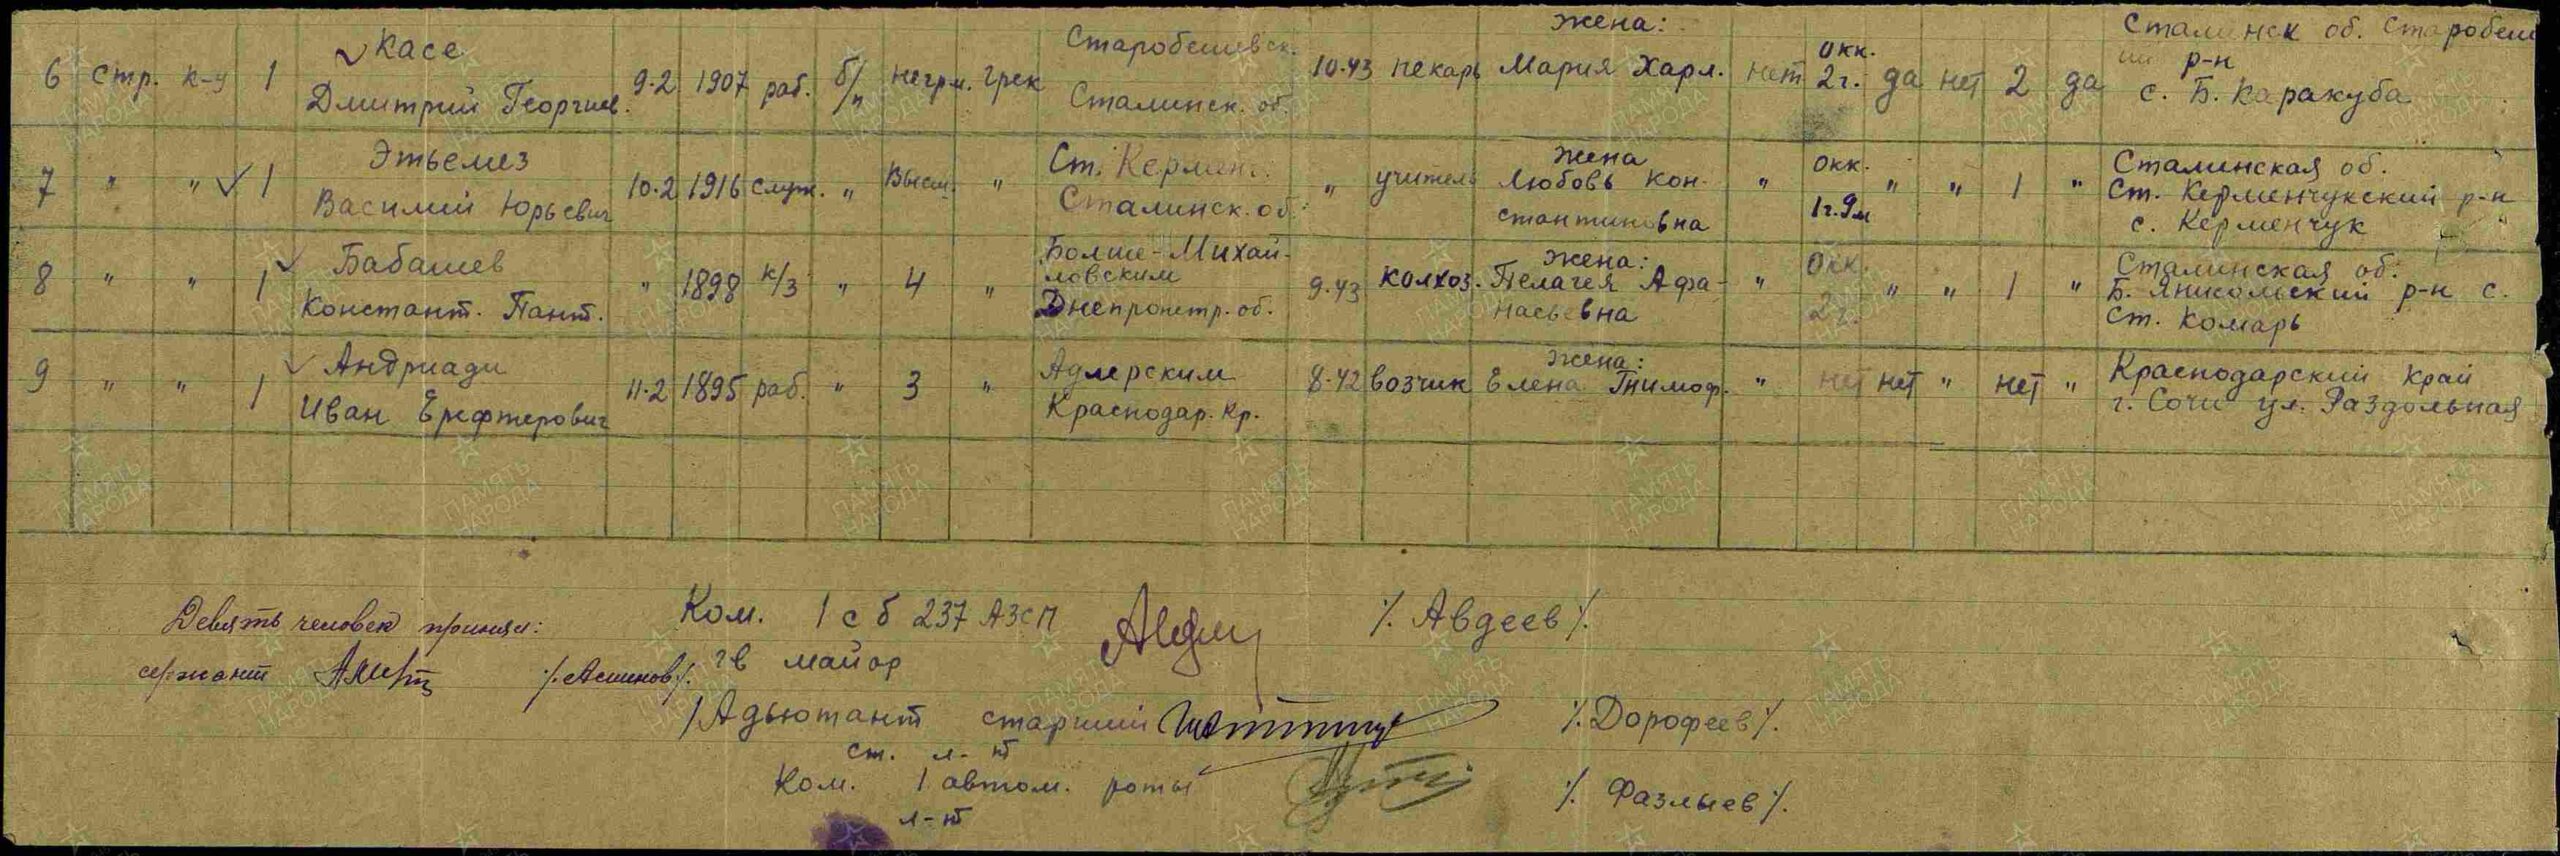 Жена:
6 стр. к-у 1 Касе 9.2 1907 раб. б/п негрм. грек Старобешевск. 10.43 пекарь Мария Харл. нет окк. 2г. да нет 2 да Сталинск об. Старобеш
Дмитрий Георгиев. Сталинск. об. ий р-н
с. Б. Каракуба
7 " " 1 Этьемез 10.2 1916 служ. " Высш. " Ст. Кермен. " учитель жена " окк. " " 1 " Сталинская об.
Василий Юрьевич Сталинск. об. Любовь Кон- 1г.9м Ст. Керменчукский р-н
стантиновна с. Керменчук
8 " " 1 Бабашев " 1898 к/з " 4 " Больше-Михай- 9.43 колхоз. Жена: " Окк. " " 1 " Сталинская об.
Констант. Пант. ловским Пелагея Афа- 2г. Б. Янисольский р-н с.
Днепропетр. об. насьевна Ст. Комарь
9 " " 1 Андриади 11.2 1895 раб. " 3 " Адлерским 8.42 возчик Жена: " нет нет " нет " Краснодарский край
Иван Ерефтерович Краснодар. кр. Елена Тимоф. г. Сочи ул. Раздольная
Девять человек принял:
сержант /. Аминов /.
Ком. 1 с б 237 АЗСП /. Авдеев /.
гв майор
Адьютант старший /. Дорофеев /.
ст. л-нт
Ком. 1 автом. роты /. Фазлыев /.
л-нт
ПАМЯТЬ НАРОДА